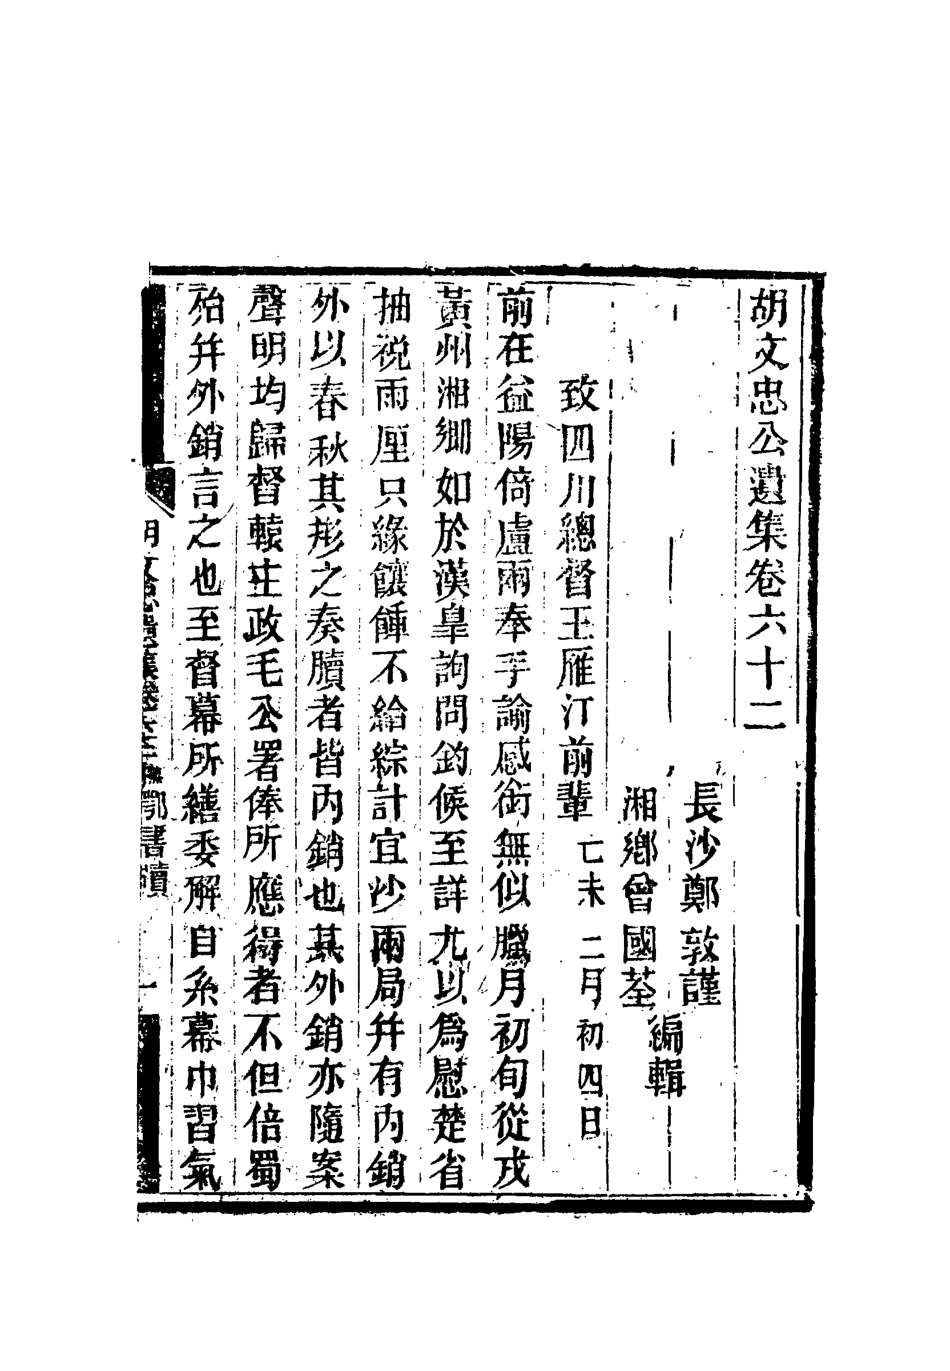 胡文忠公遺集卷六十二
長沙鄭敦謹
湘鄉曾國荃
編輯
致四川總督王雁汀前輩 己未二月初四日
前在益陽倚廬兩奉手諭感銜無似臘月初旬從戎
黃州湘鄉如於漢皐詢問鈞候至詳尤以爲慰楚省
抽稅兩厘只緣饟餉不給綜計宜沙兩局幷有內銷
外以春秋其形之奏牘者皆內銷也其外銷亦隨案
聲明均歸督轅主政毛公署俸所應得者不但倍蜀
殆幷外銷言之也至督幕所繕委解自系幕巾習氣
胡文忠遺集卷六十二 撫鄂書牘 一